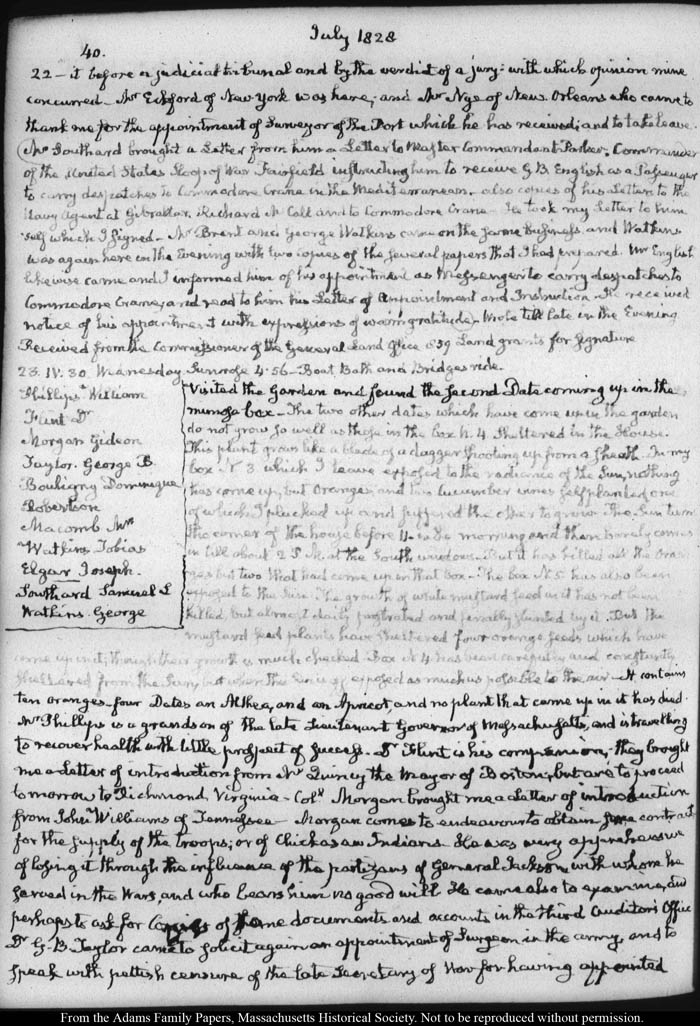 July 1828
40.
22 – it before a judicial tribunal and by the verdict of a jury: with which opinion mine
concurred – Mr Eckford of New York was here, and Mr Nye of New Orleans who came to
thank me for the appointment of Surveyor of the Port which he has received; and to take leave.
Mr Southard brought a Letter from him a Letter to Master Commandant Parker, Commander
of the United States Sloop of War Fairfield instructing him to receive G B English as a Passenger
to carry despatches to Commodore Crane in the Mediterranean. also copies of his Letters to the
Navy Agent at Gibraltar, Richard McCall and to Commodore Crane – He took my Letter to him
self which I signed – Mr Brent and George Watkins came on the same business. and Watkins
was again here in the Evening with two copies of the several papers that I had prepared. Mr English
likewise came and I informed him of his appointment as Messenger to carry despatches to
Commodore Crane, and read to him his Letter of Appointment and Instruction. He received
notice of his appointment with expressions of warm gratitude – Wrote till late in the Evening
Received from the Commissioner of the General Land Office 539 Land grants for signature
23. IV. 30. Wednesday Sunrose 4.56 – Boat Bath and Bridges ride.
Phillips William
Flint Dr
Morgan Gideon
Taylor. George B.
Bouligny Dominique
Robertson
Macomb Mrs
Watkins Tobias
Elgar Joseph.
Southard Samuel L
Watkins George
Visited the Garden and found the second Date coming up in the
mimosa box – The two other dates which have come up in the garden
do not grow so well as those in the box N. 4 sheltered in the House.
This plant grows like a blade of a dagger shooting up from a sheath. In my
box N 3. which I leave exposed to the radiance of the Sun, nothing
has come up, but Oranges, and two Cucumber vines self planted one
of which I plucked up and suffered the other to grow. The Sun turns
the corner of the house before 11 in the morning and then barely comes
in till about 2 P.M. at the South windows. But it has killed all the Oran-
ges but two that had come up in that box – The box N 5 has also been
exposed to the Sun. The growth of white mustard seed in it has not been
killed but almost daily prostrated and stunted by it. But the
mustard seed plants have sheltered four orange seeds which have
come up in it; though their growth is much checked. Box N 4 has been carefully and constantly
sheltered from the Sun, but when the Sun is off exposed as much as possible to the air – It contains
ten oranges – four Dates an Althea, and an Apricot, and no plant that came up in it has died.
Mr Phillips is a grandson of the late Lieutenant Governor of Massachusetts, and is travelling
to recover health with little prospect of success. Dr Flint is his companion, they brought
me a Letter of introduction from Mr Quincy the Mayor of Boston; but are to proceed
tomorrow to Richmond, Virginia – Coll Morgan brought me a Letter of introduction
from John Williams of Tennessee – Morgan comes to endeavour to obtain some contract
for the supply of the troops; or of Chickasaw Indians. He was very apprehensive
of losing it through the influence of the partizans of General Jackson, with whom he
served in the Wars, and who bears him no good will. He came also to examine, and
perhaps to ask for Copies of some documents and accounts in the third Auditor's Office
Dr G. B. Taylor came to solicit again an appointment of Surgeon in the army, and to
speak with pettish censure of the late Secretary of War for having appointed
From the Adams Family Papers, Massachusetts Historical Society. Not to be reproduced without permission.